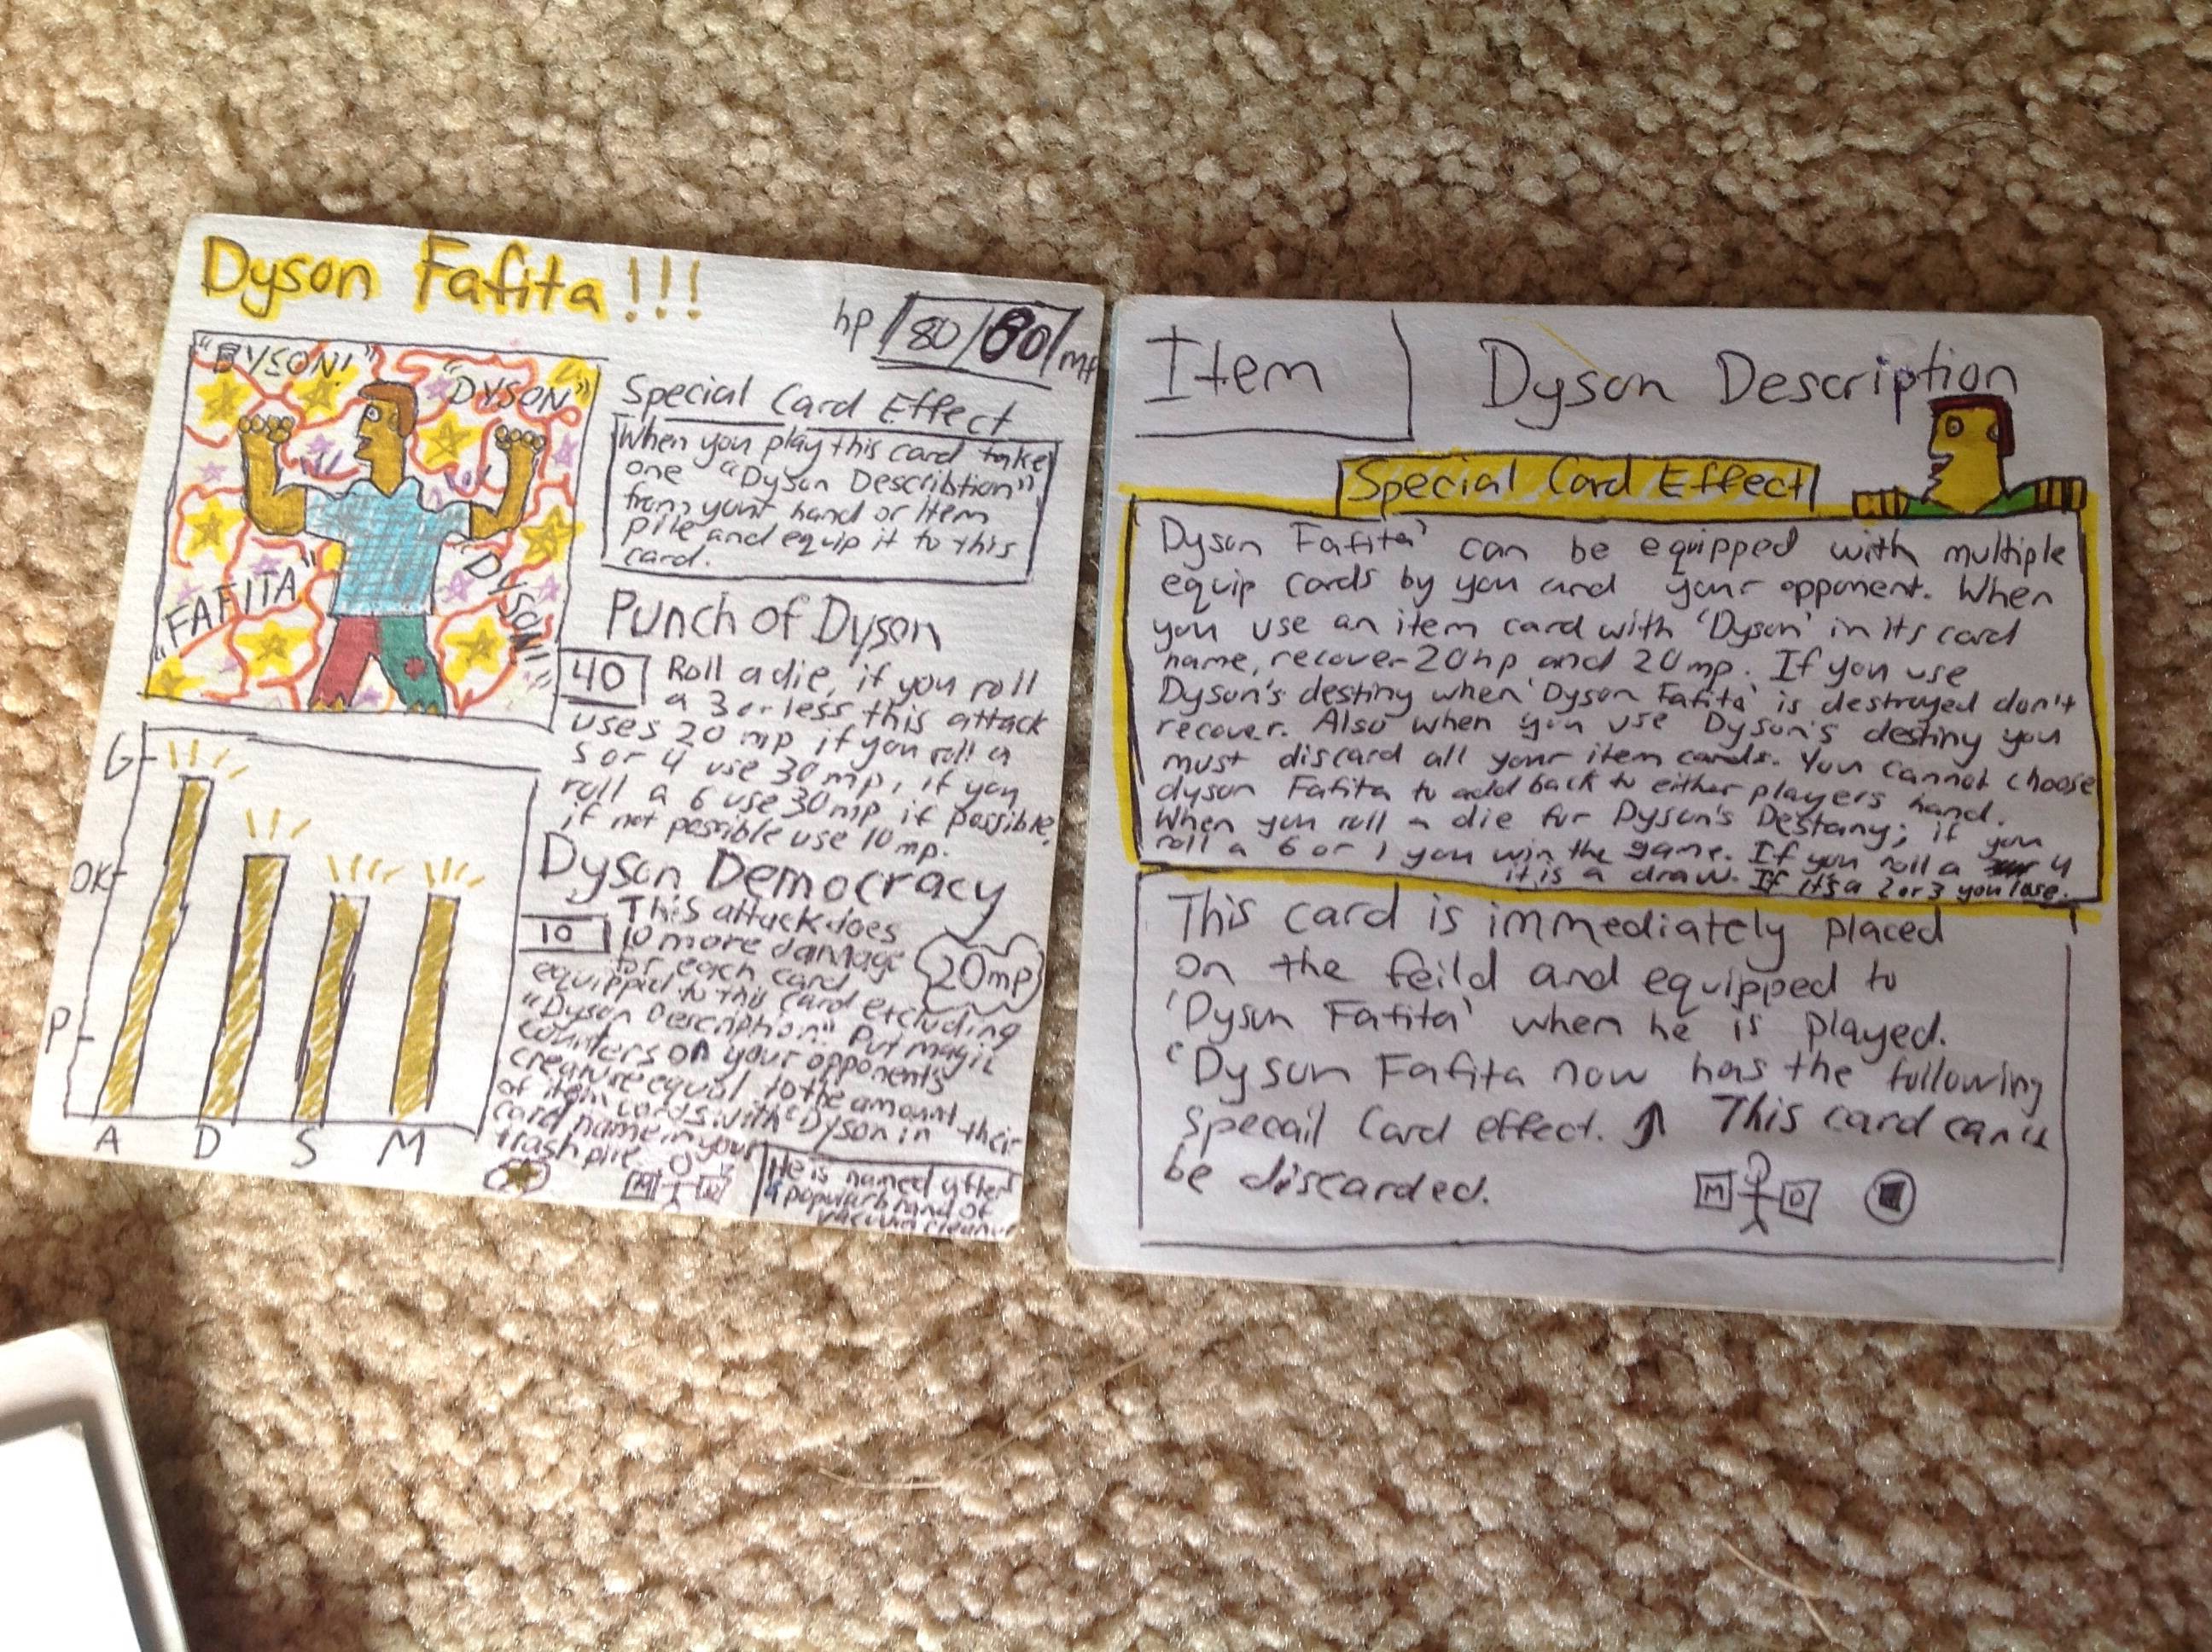 Dyson Fafita!!!
hp 80/80 mp
"DYSON!"
"DYSON"
"FAFITA"
"DYSON!"
Special Card Effect
When you play this card take
one "Dyson Describtion"
from your hand or Item
pile and equip it to this
card.
Punch of Dyson
40 Roll a die, if you roll
a 3 or less this attack
uses 20 mp, if you roll a
5 or 4 use 30 mp, if you
roll a 6 use 30 mp if possible,
if not possible use 10 mp.
Dyson Democracy
10 This attack does
10 more damage
for each card
equipped to this card excluding
"Dyson Description". Put magic
counters on your opponents
creature equal to the amount
of item cards with 'Dyson in their
card name in your
trash pile.
20mp
G
OK
P
A D S M
M D
He is named after
a popular brand of
vacuum cleaner
Item
Dyson Description
Special Card Effect
Dyson Fafita' can be equipped with multiple
equip cards by you and your opponent. When
you use an item card with 'Dyson' in its card
name, recover 20hp and 20mp. If you use
Dyson's destiny when 'Dyson Fafita' is destroyed don't
recover. Also when you use Dyson's destiny you
must discard all your item cards. You cannot choose
dyson Fafita to add back to either players hand.
When you roll a die for Dyson's Destany; if you
roll a 6 or 1 you win the game. If you roll a 4
it is a draw. If it's a 2 or 3 you lose.
This card is immediately placed
on the feild and equipped to
'Dyson Fafita' when he is played.
'Dyson Fafita now has the following
specail Card effect. ↑ This card can't
be discarded.
M D